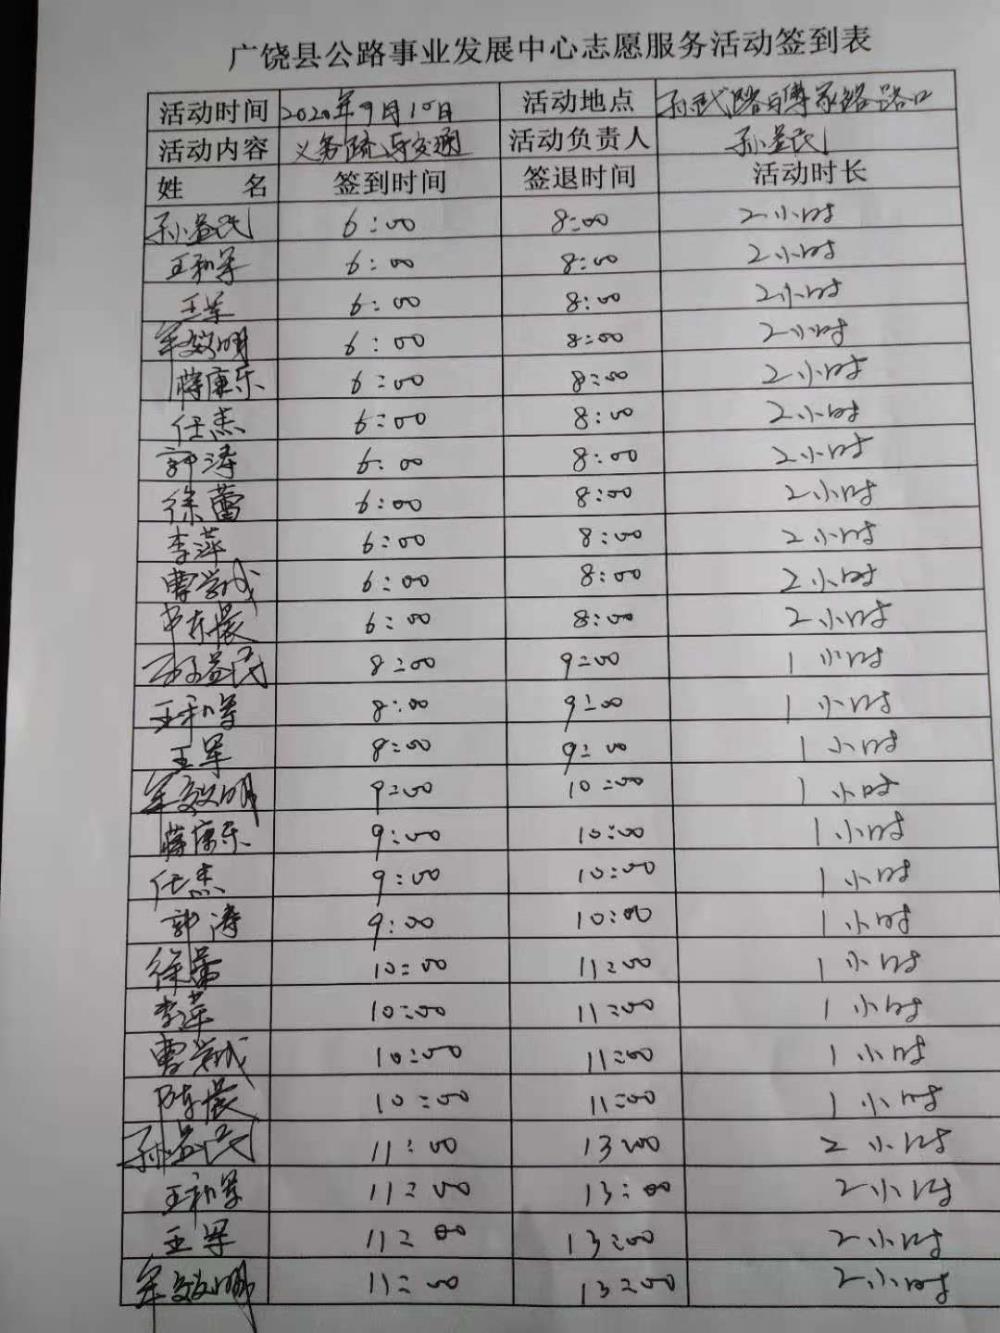 广饶县公路事业发展中心志愿服务活动签到表
活动时间 2020年9月10日 活动地点 孙武路与傅家路路口
活动内容 义务疏导交通 活动负责人 孙益民
姓 名 签到时间 签退时间 活动时长
孙益民 6:00 8:00 2小时
王和军 6:00 8:00 2小时
王军 6:00 8:00 2小时
效明 6:00 8:00 2小时
蒋康乐 6:00 8:00 2小时
任杰 6:00 8:00 2小时
郭涛 6:00 8:00 2小时
徐蕾 6:00 8:00 2小时
李萍 6:00 8:00 2小时
曹学成 6:00 8:00 2小时
6:00 8:00 2小时
孙益民 8:00 9:00 1小时
王和军 8:00 9:00 1小时
王军 8:00 9:00 1小时
效明 9:00 10:00 1小时
蒋康乐 9:00 10:00 1小时
任杰 9:00 10:00 1小时
郭涛 9:00 10:00 1小时
徐蕾 10:00 11:00 1小时
李萍 10:00 11:00 1小时
曹学成 10:00 11:00 1小时
陈晨 10:00 11:00 1小时
孙益民 11:00 13:00 2小时
王和军 11:00 13:00 2小时
王军 11:00 13:00 2小时
效明 11:00 13:00 2小时